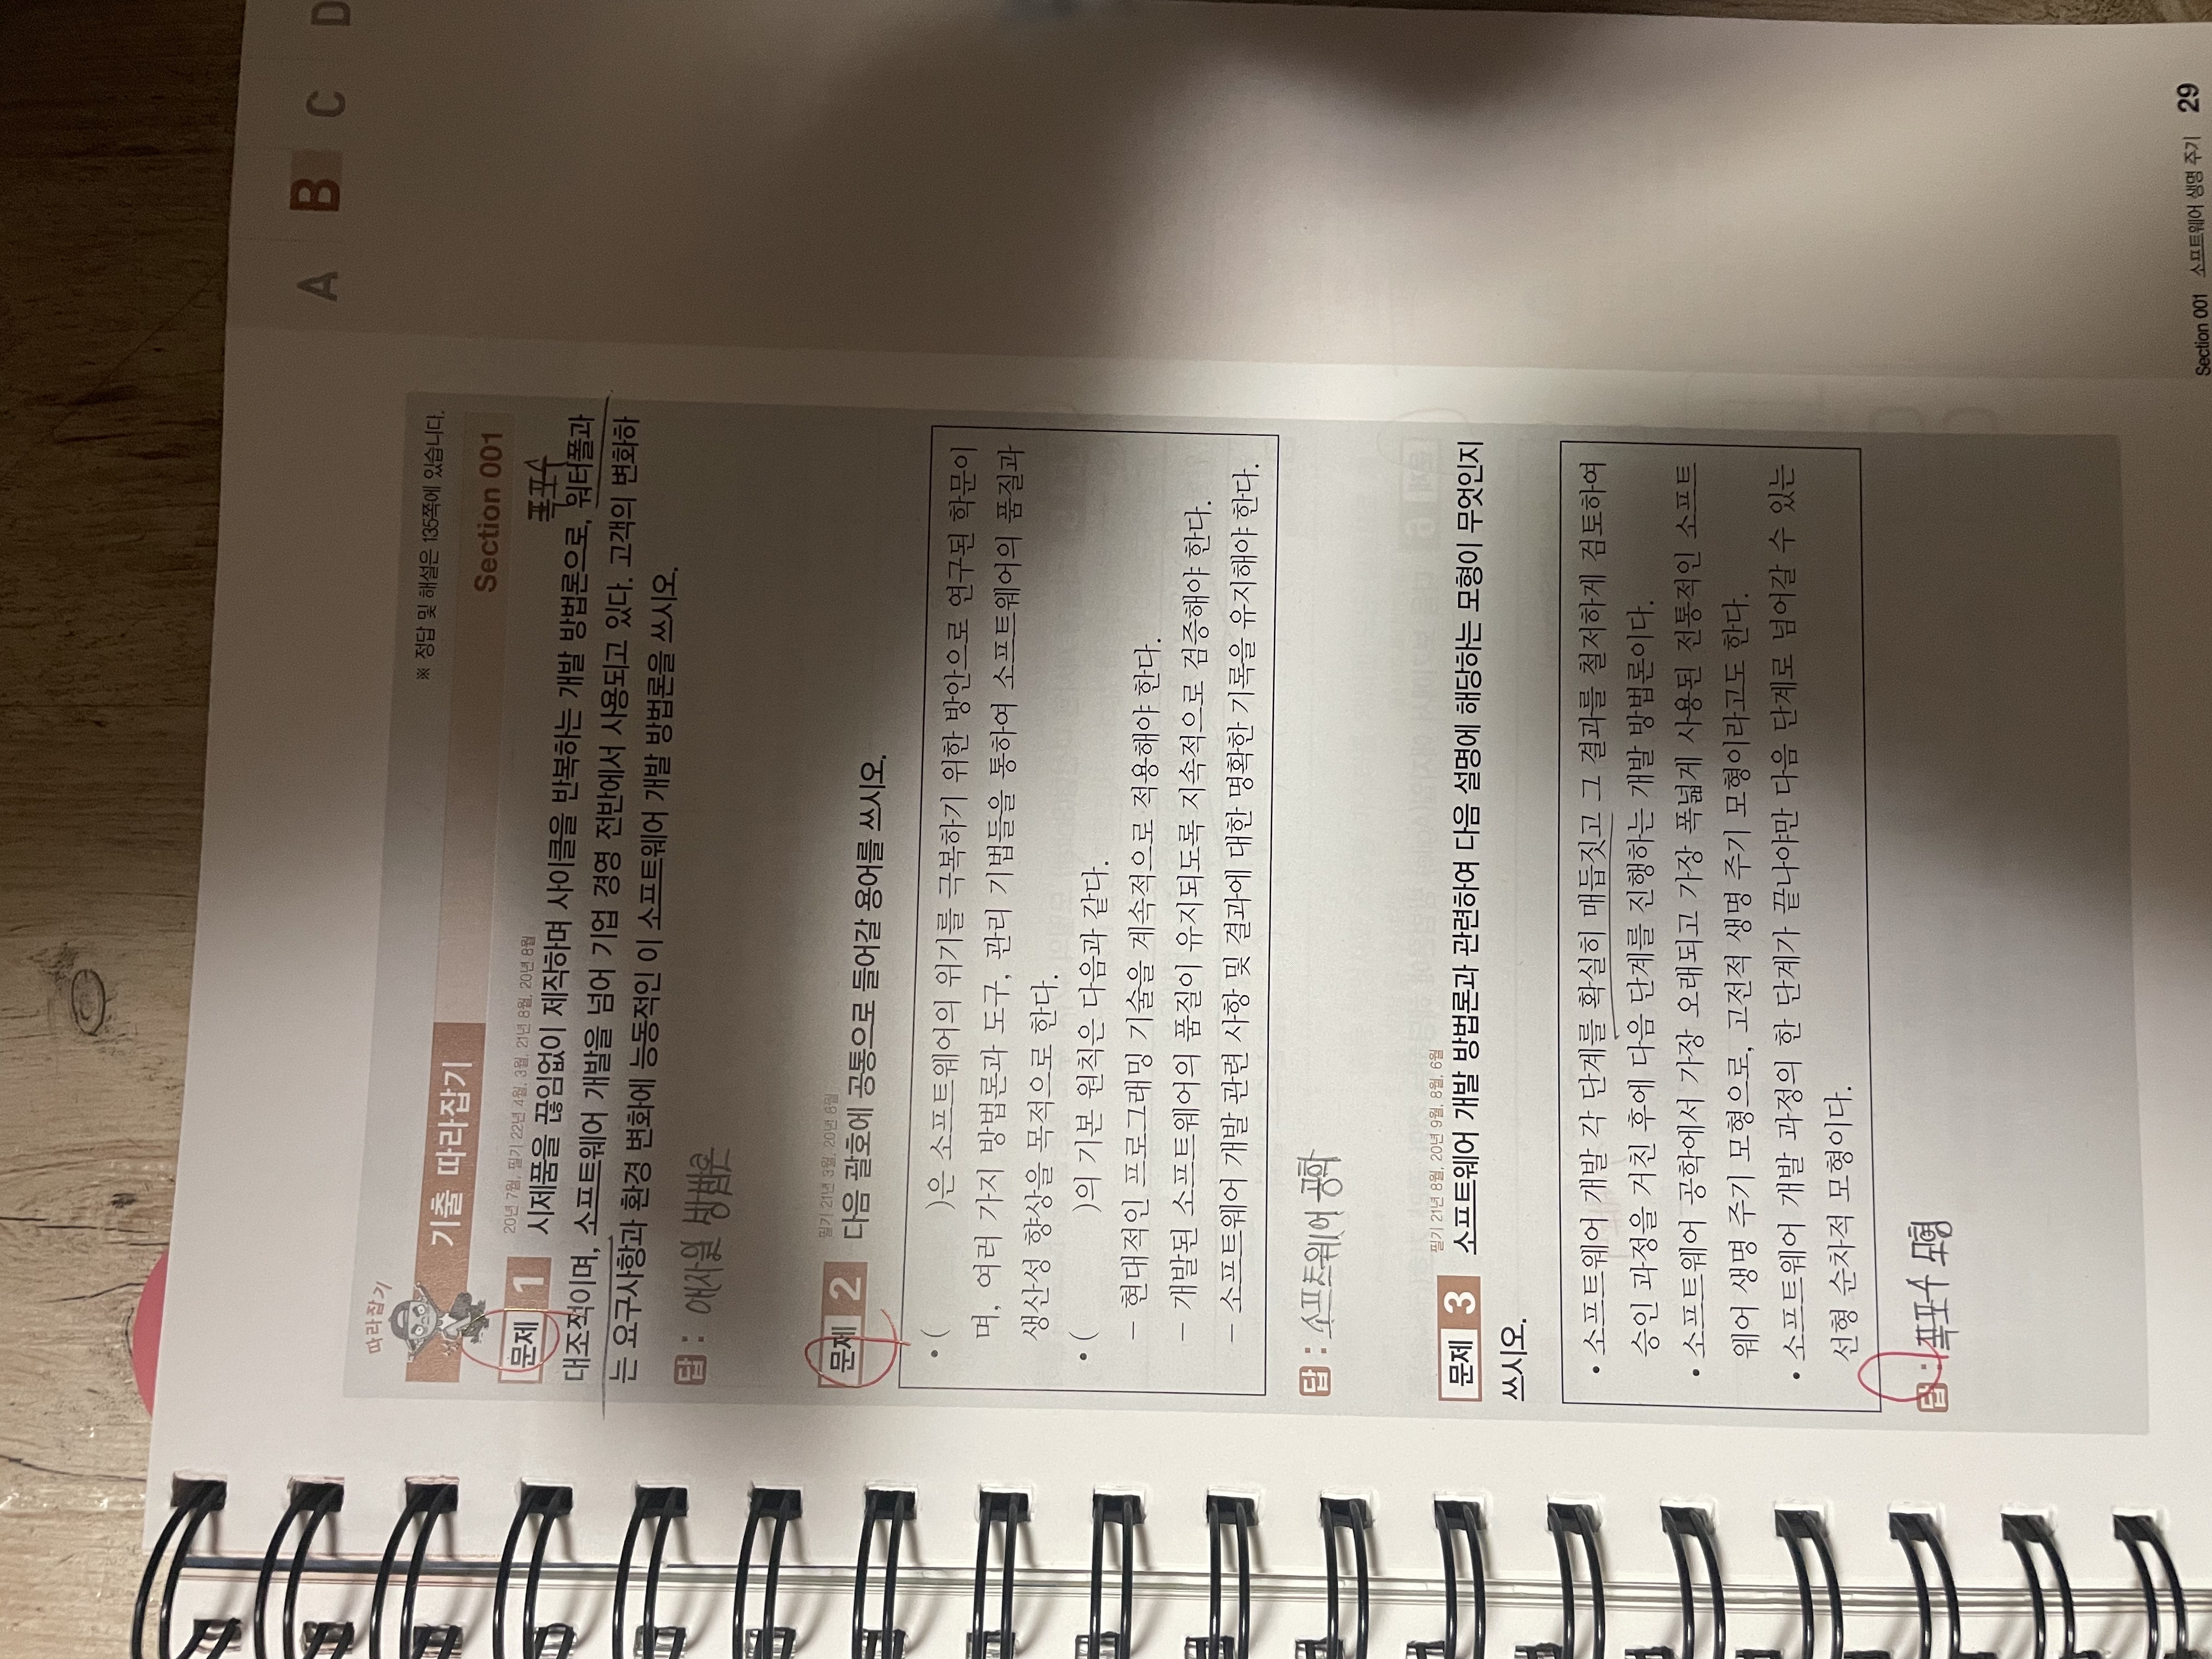 A B C D
따라잡기
※ 정답 및 해설은 135쪽에 있습니다.
기출 따라잡기
Section 001
20년 7월, 필기 22년 4월, 3월, 21년 8월, 20년 8월
폭포수
문제 1 시제품을 끊임없이 제작하며 사이클을 반복하는 개발 방법론으로, 워터폴과
대조적이며, 소프트웨어 개발을 넘어 기업 경영 전반에서 사용되고 있다. 고객의 변화하
는 요구사항과 환경 변화에 능동적인 이 소프트웨어 개발 방법론을 쓰시오.
답 : 애자일 방법론
필기 21년 3월, 20년 6월
문제 2 다음 괄호에 공통으로 들어갈 용어를 쓰시오.
• ( )은 소프트웨어의 위기를 극복하기 위한 방안으로 연구된 학문이
며, 여러 가지 방법론과 도구, 관리 기법들을 통하여 소프트웨어의 품질과
생산성 향상을 목적으로 한다.
• ( )의 기본 원칙은 다음과 같다.
– 현대적인 프로그래밍 기술을 계속적으로 적용해야 한다.
– 개발된 소프트웨어의 품질이 유지되도록 지속적으로 검증해야 한다.
– 소프트웨어 개발 관련 사항 및 결과에 대한 명확한 기록을 유지해야 한다.
답 : 소프트웨어 공학
필기 21년 8월, 20년 9월, 8월, 6월
문제 3 소프트웨어 개발 방법론과 관련하여 다음 설명에 해당하는 모형이 무엇인지
쓰시오.
• 소프트웨어 개발 각 단계를 확실히 매듭짓고 그 결과를 철저하게 검토하여
승인 과정을 거친 후에 다음 단계를 진행하는 개발 방법론이다.
• 소프트웨어 공학에서 가장 오래되고 가장 폭넓게 사용된 전통적인 소프트
웨어 생명 주기 모형으로, 고전적 생명 주기 모형이라고도 한다.
• 소프트웨어 개발 과정의 한 단계가 끝나야만 다음 단계로 넘어갈 수 있는
선형 순차적 모형이다.
답 : 폭포수 모형
Section 001 소프트웨어 생명 주기 29